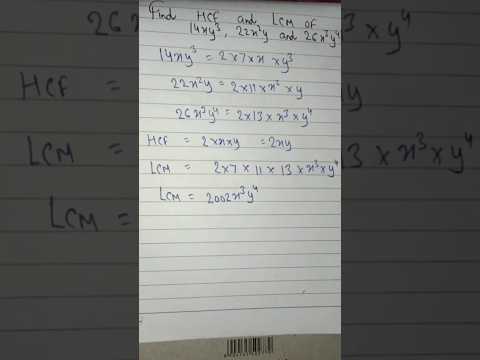 Find HCF and LCM of
14xy³, 22x²y and 26x³y⁴
14xy³ = 2×7×x×y³
22x²y = 2×11×x²×y
26x³y⁴ = 2×13×x³×y⁴
HCF = 2×x×y = 2xy
LCM = 2×7×11×13×x³×y⁴
LCM = 2002x³y⁴